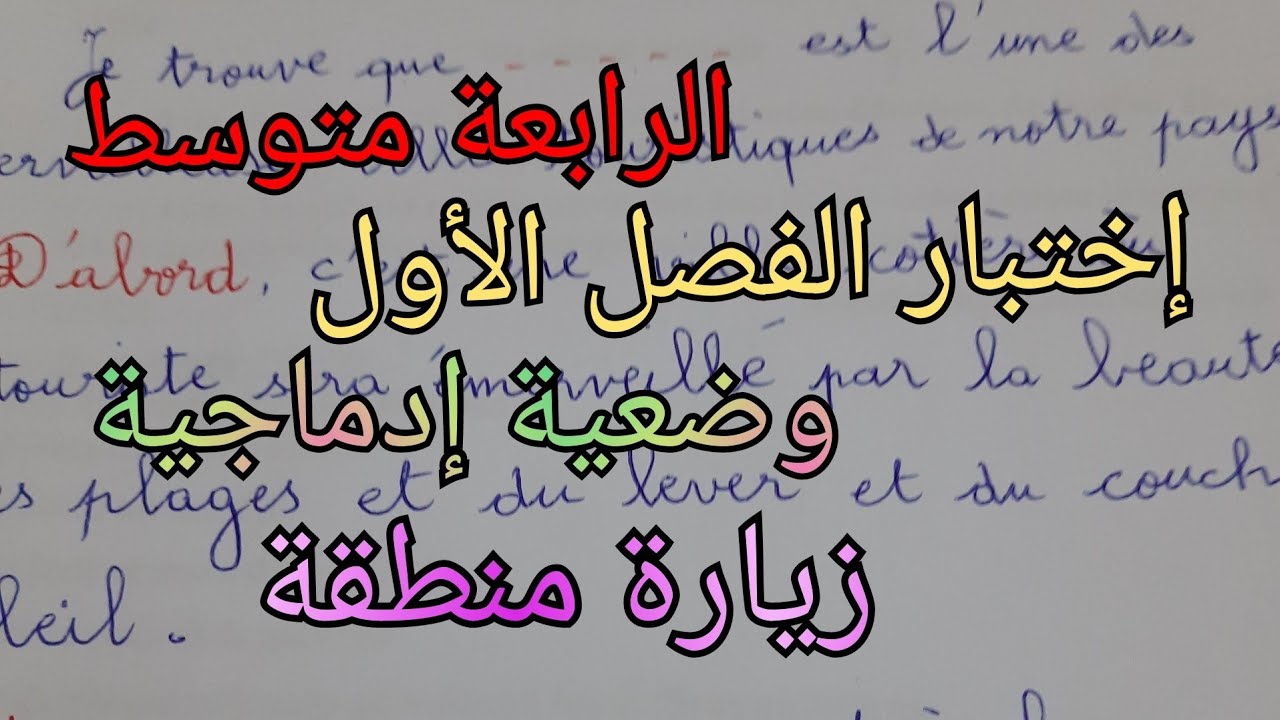 Je trouve que - - - - - - est l'une des
الرابعة متوسط
de notre pays
إختبار الفصل الأول
D'abord, c'est
وضعية إدماجية
touriste sera émerveillé par la beauté
es plages et du lever et du couch
زيارة منطقة
leil.